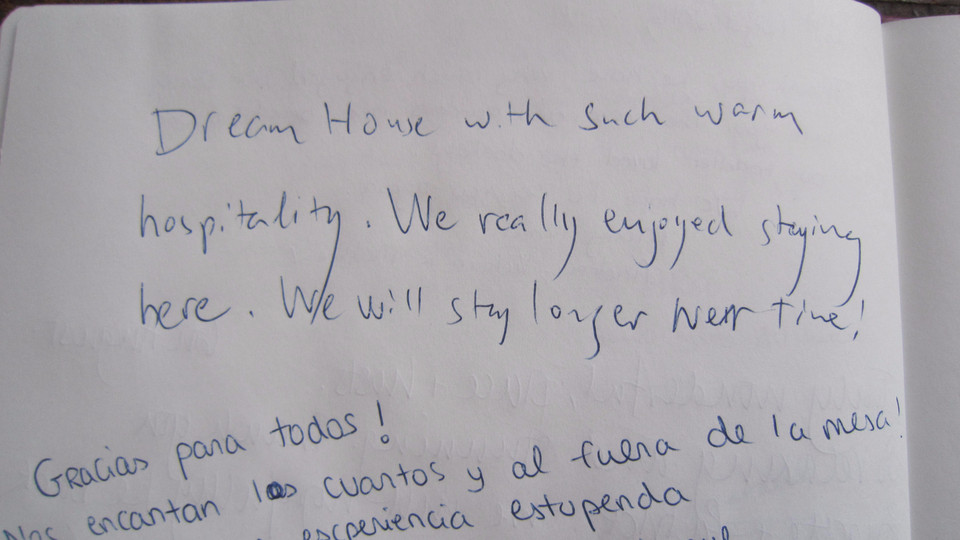 Dream House with such warm
hospitality. We really enjoyed staying
here. We will stay longer next time!
Gracias para todos!
Nos encantan los cuartos y al fuera de la mesa!
escperiencia estupenda